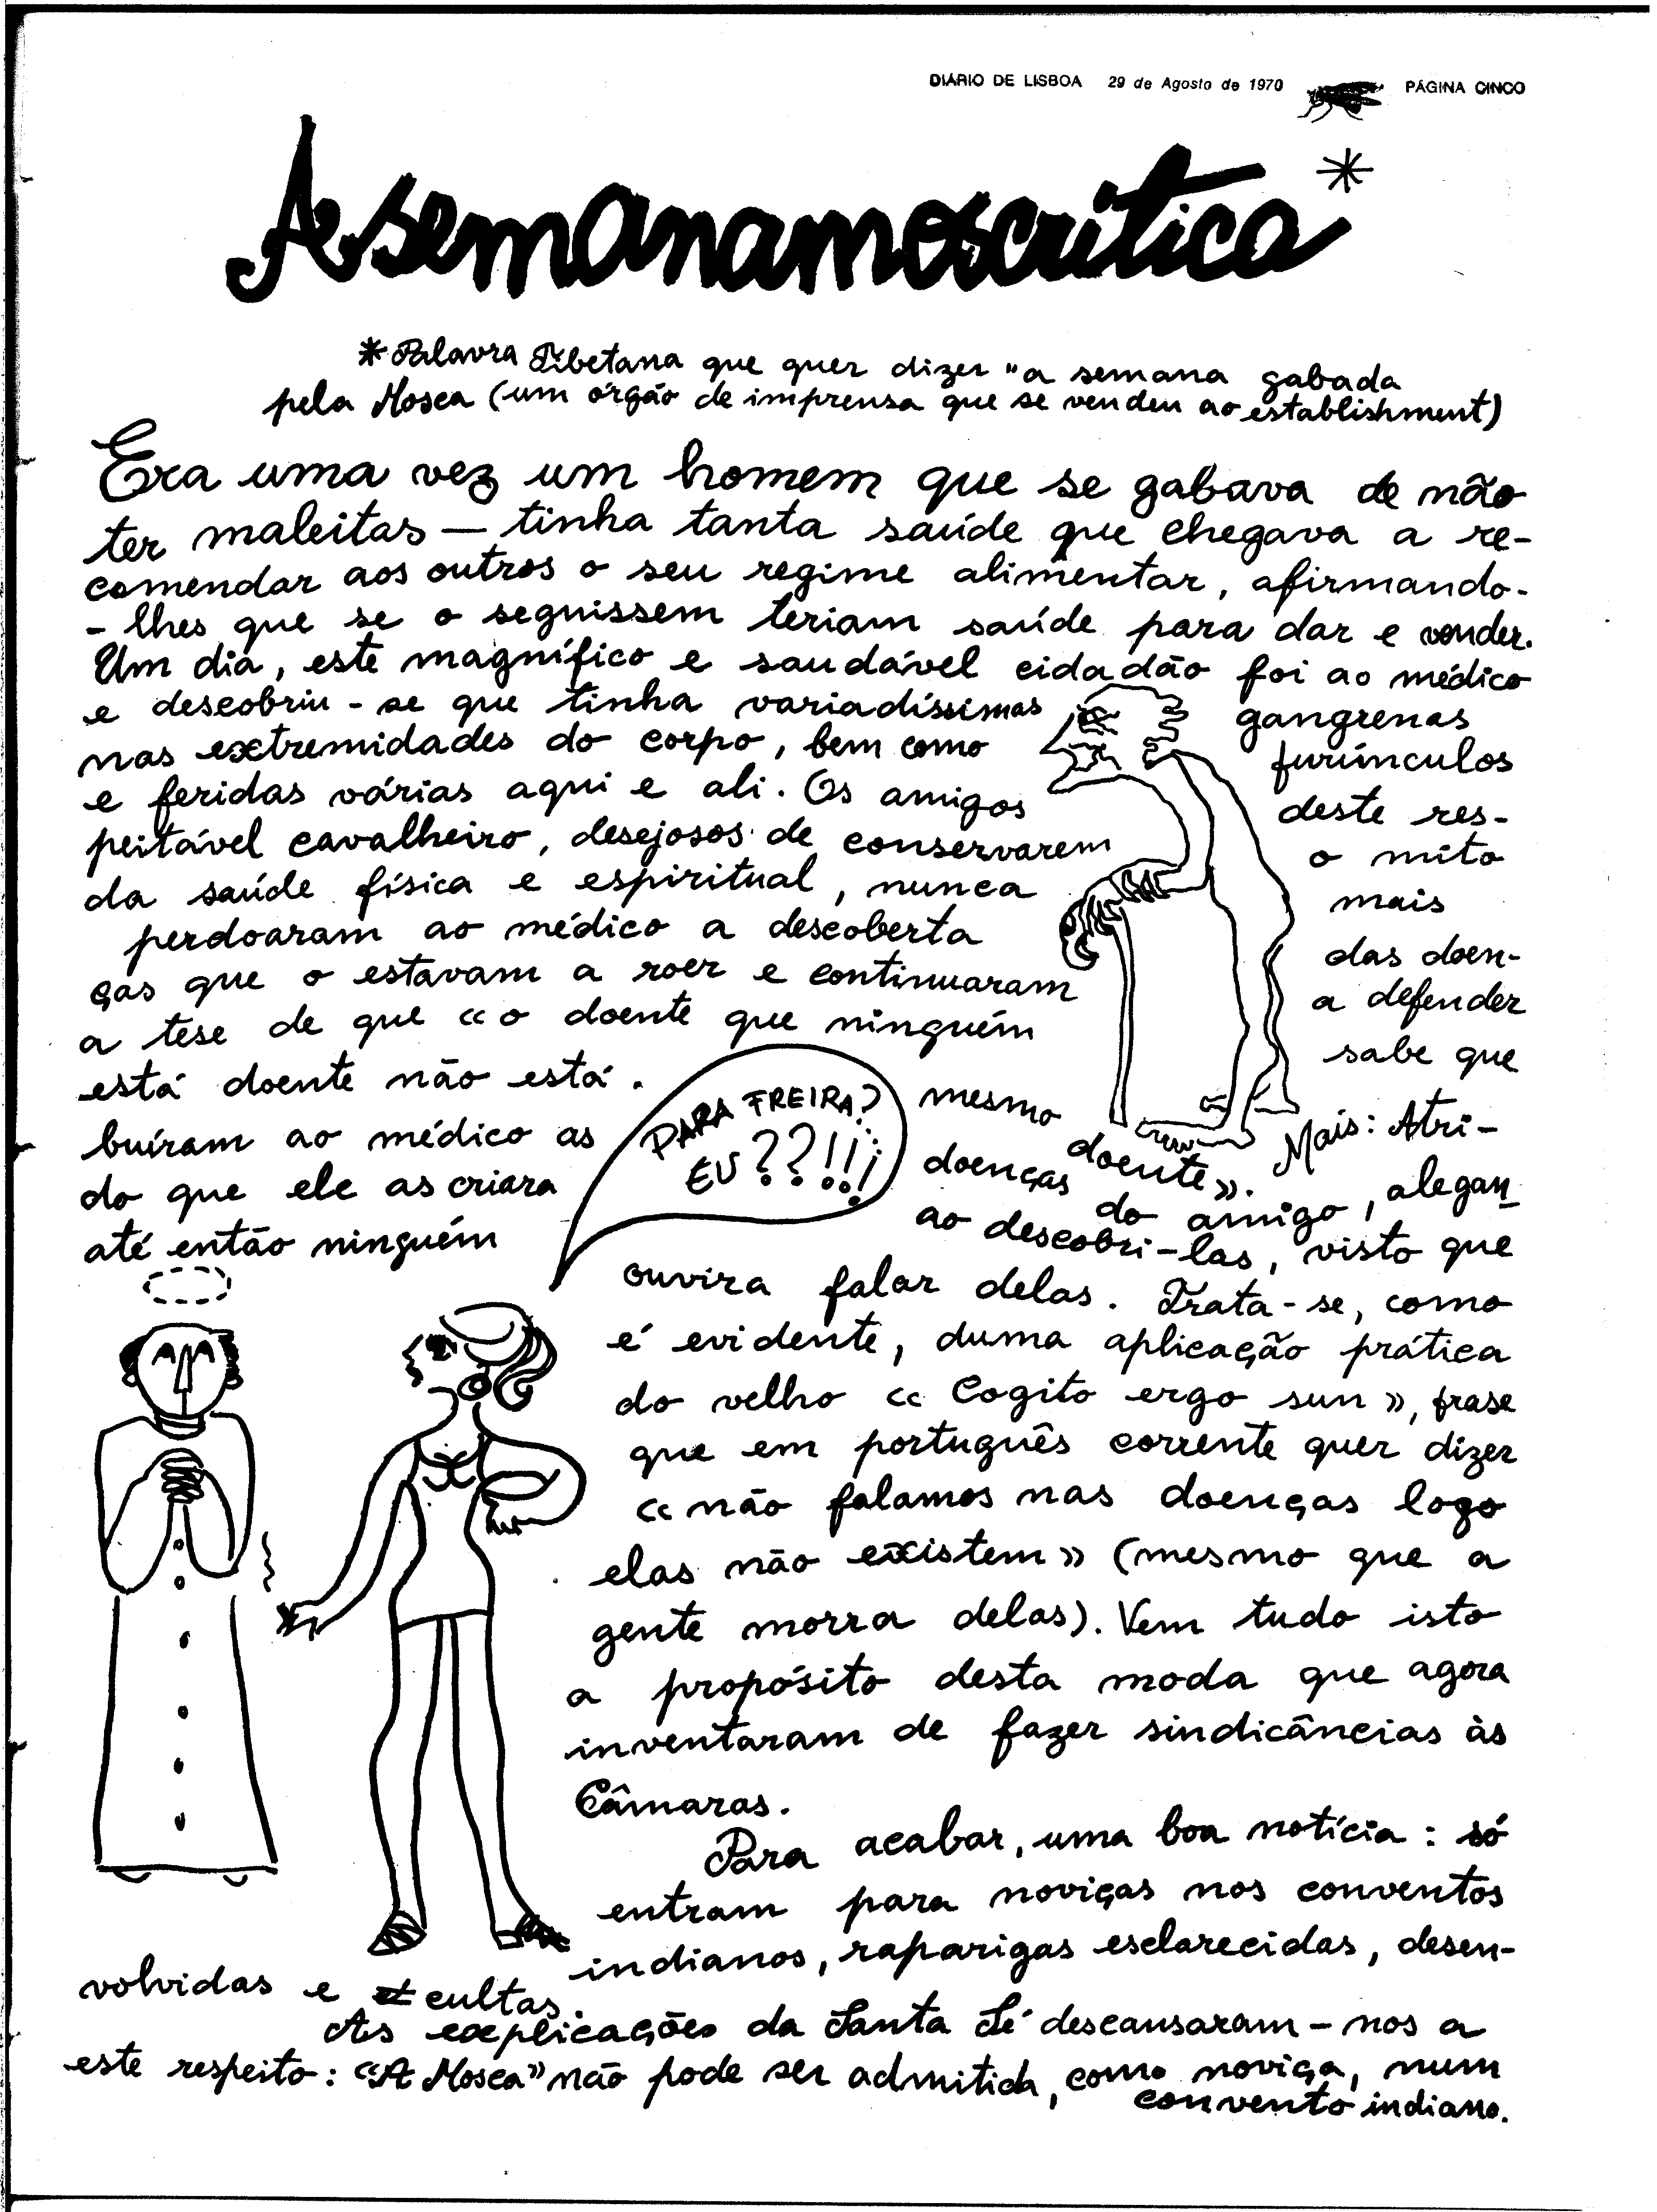 DIÁRIO DE LISBOA 29 de Agosto de 1970 PÁGINA CINCO
Asemanamoscritica*
*Palavra Tibetana que quer dizer "a semana gabada
pela Mosca (um órgão de imprensa que se vendeu ao establishment)
Era uma vez um homem que se gabava de não
ter maleitas — tinha tanta saúde que chegava a re-
comendar aos outros o seu regime alimentar, afirmando-
-lhes que se o seguissem teriam saúde para dar e vender.
Um dia, este magnífico e saudável cidadão foi ao médico
e descobriu-se que tinha variadíssimas gangrenas
nas extremidades do corpo, bem como furúnculos
e feridas várias aqui e ali. Os amigos deste res-
peitável cavalheiro, desejosos de conservarem o mito
da saúde física e espiritual, nunca mais
perdoaram ao médico a descoberta das doen-
ças que o estavam a roer e continuaram a defender
a tese de que «o doente que ninguém sabe que
está doente não está mesmo doente». Mais: Atri-
buíram ao médico as doenças do amigo, alegan
do que ele as criara ao descobri-las, visto que
até então ninguém ouvira falar delas. Trata-se, como
é evidente, duma aplicação prática
do velho «Cogito ergo sun», frase
que em português corrente quer dizer
«não falamos nas doenças logo
elas não existem» (mesmo que a
gente morra delas). Vem tudo isto
a propósito desta moda que agora
inventaram de fazer sindicâncias às
Câmaras.
PARA FREIRA?
EU??!!!
Para acabar, uma boa notícia: só
entram para noviças nos conventos
indianos, raparigas esclarecidas, desen-
volvidas e cultas.
As explicações da Santa Sé descansaram-nos a
este respeito: "A Mosca" não pode ser admitida, como noviça, num
convento indiano.